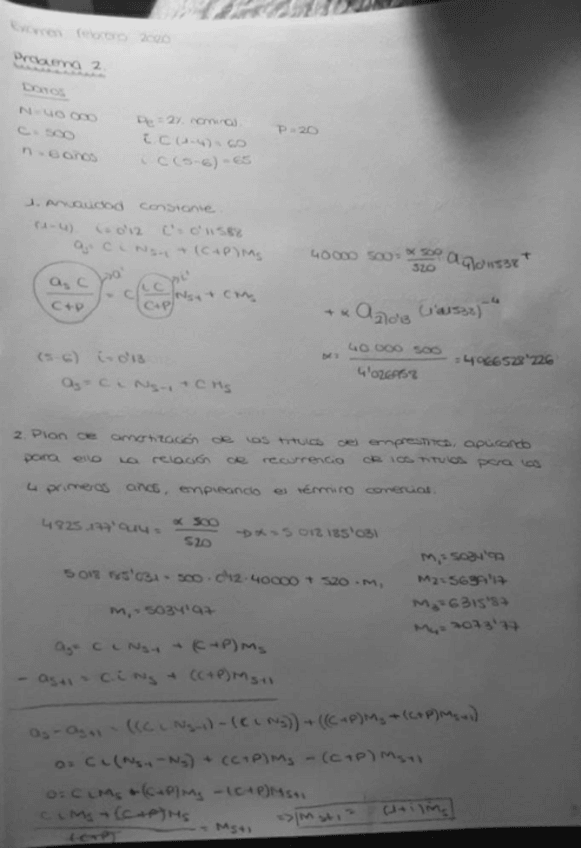 Examen febrero 2020
Problema 2.
Datos
N=40 000 Pe=2% nominal P=20
C=500 i C(1-4)=60
n=6 años i C(5-6)=65
1. Anualidad constante
(1-4) i=0'12 i'=0'11538
as= C i Ns-1 + (C+P)Ms
as C / C+P = C (i C / C+P) Ns-1 + C Ms
(5-6) i=0'13
as= C i Ns-1 + C Ms
40000 500= α 500/520 a 4⌉0'11538 +
+ α a 2⌉0'13 (1'11538)^-4
α= 40.000 500 / 4'026958 = 4966528'226
2. Plan de amortización de los títulos del empréstito, aplicando
para ello la relación de recurrencia de los títulos para los
4 primeros años, empleando el término comercial.
= α 500/520 → α=5 018185'031
5018 185'031 = 500 · 0'12 · 40000 + 520 · M1
M1=5034'97
M1=5034'97
M2=5639'17
M3=6315'87
M4=7073'77
as= C i Ns-1 + (C+P)Ms
- as+1 = C i Ns + (C+P)Ms+1
as-as+1 = ((C i Ns-1)-(C i Ns)) + ((C+P)Ms+(C+P)Ms+1)
0= C i (Ns-1-Ns) + (C+P)Ms - (C+P)Ms+1
0= C i Ms + (C+P)Ms - (C+P)Ms+1
C i Ms + (C+P)Ms / (C+P) = Ms+1 => Ms+1 = (1+i)Ms